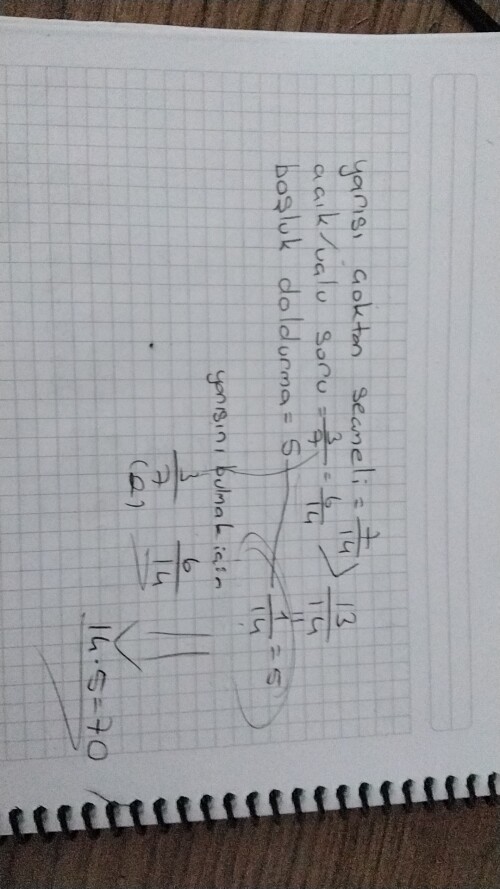 yarısı çoktan seçmeli = 7/14
açık uçlu soru = 3/7 = 6/14 13/14
boşluk doldurma = 5 1/14 = 5
yarısını bulmak için
3/7 6/14
(2)
14.5=70